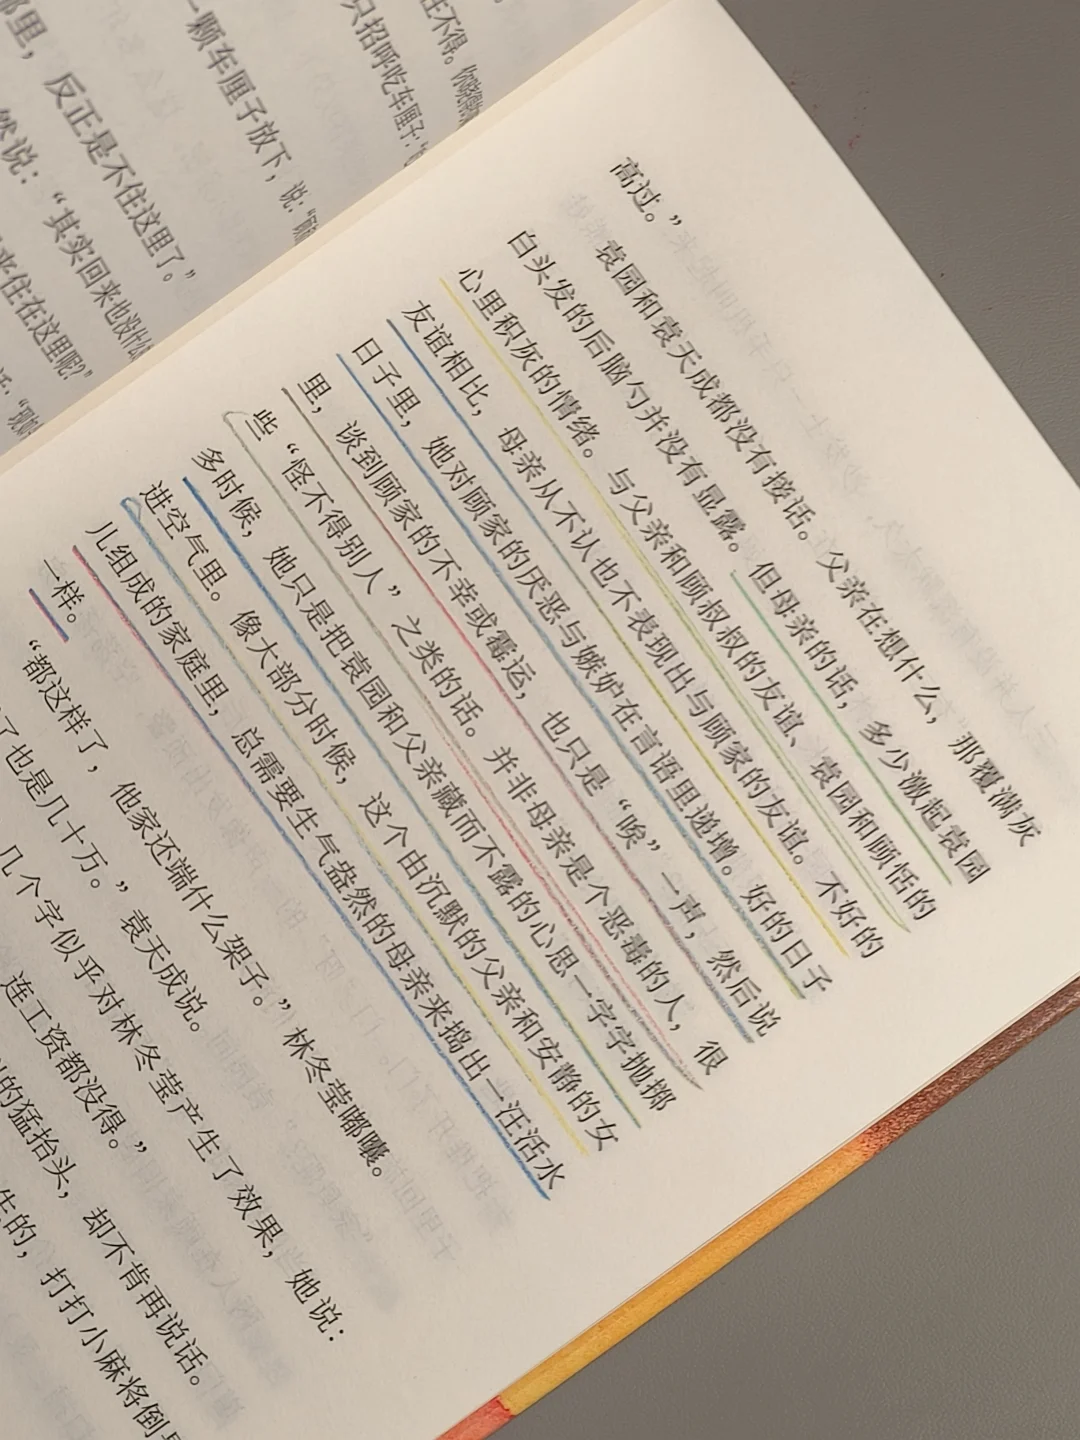 那里，反正是不住这里了。”
一颗车厘子放下，说：
只招呼吃车厘子：
在不得。你
然说：“其实回来也没什么
来住在这里呢？”
高过。”
袁园和袁天成都没有接话。父亲在想什么，那覆满灰
白头发的后脑勺并没有显露。但母亲的话，多少激起袁园
心里积灰的情绪。与父亲和顾叔叔的友谊、袁园和顾恬的
友谊相比，母亲从不认也不表现出与顾家的友谊。不好的
日子里，她对顾家的厌恶与嫉妒在言语里递增。好的日子
里，谈到顾家的不幸或霉运，也只是“唉”一声，然后说
些“怪不得别人”之类的话。并非母亲是个恶毒的人，很
多时候，她只是把袁园和父亲藏而不露的心思一字字抛掷
进空气里。像大部分时候，这个由沉默的父亲和安静的女
儿组成的家庭里，总需要生气盎然的母亲来捣出一汪活水
一样。
“都这样了，他家还端什么架子。”林冬莹嘟囔。
了也是几十万。”袁天成说。
几个字似乎对林冬莹产生了效果，她说：
连工资都没得。”
的猛抬头，却不肯再说话。
生的，打打小麻将倒是